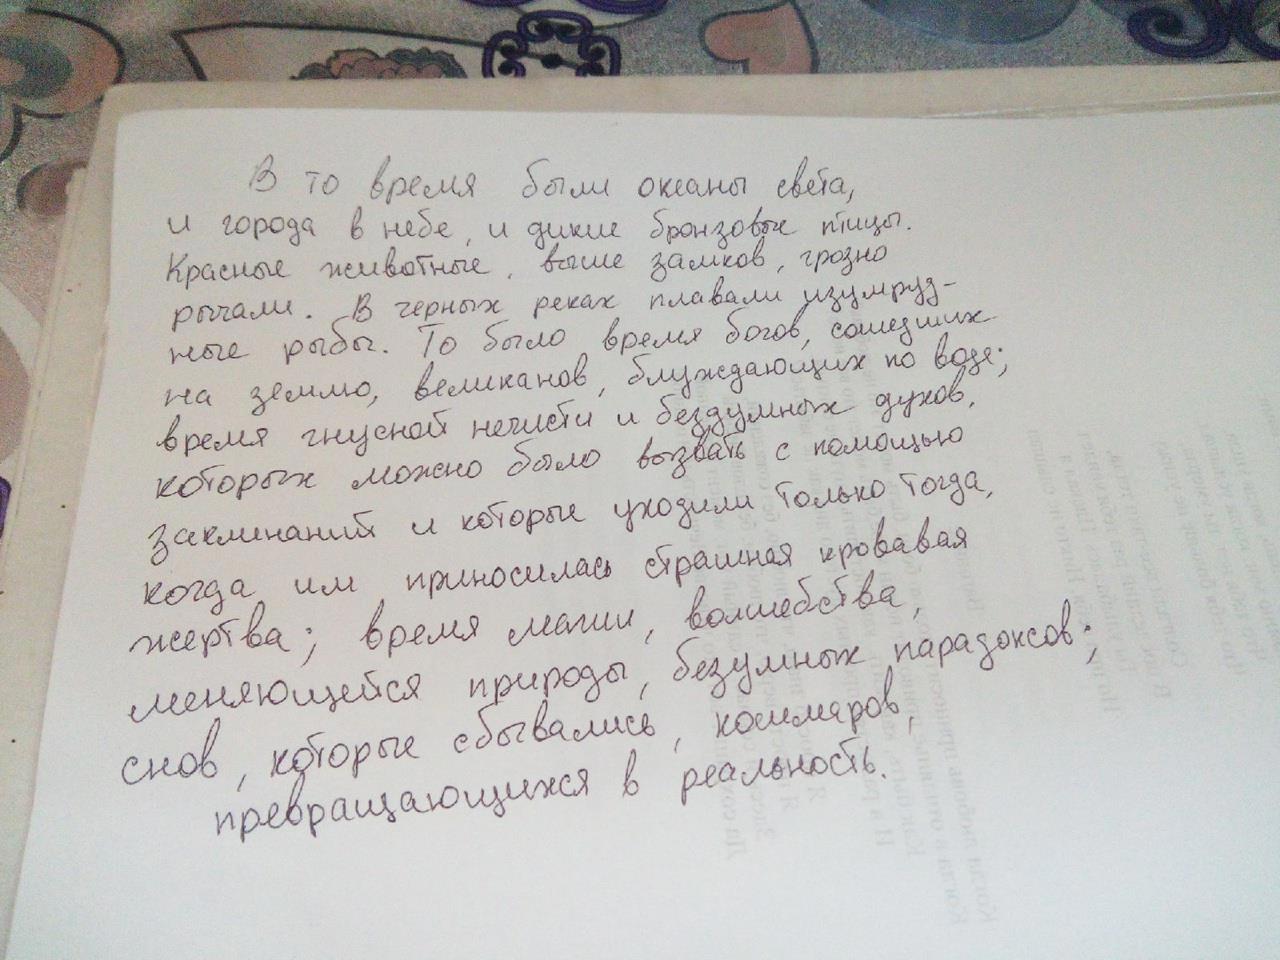 В то время были океаны света,
и города в небе, и дикие бронзовые птицы.
Красные животные, выше замков, грозно
рычали. В черных реках плавали изумруд-
ные рыбы. То было время богов, сошедших
на землю, великанов, блуждающих по воде;
время гнусной нечисти и бездумных духов,
которых можно было вызвать с помощью
заклинаний и которые уходили только тогда,
когда им приносилась страшная кровавая
жертва; время магии, волшебства,
меняющейся природы, безумных парадоксов;
снов, которые сбывались, кошмаров,
превращающихся в реальность.